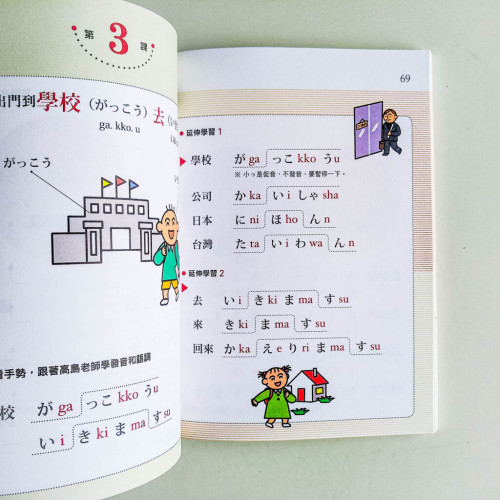 第 3 課
出門到學校（がっこう）去
ga. kko. u
がっこう
手勢，跟著高島老師學發音和語調
校 が ga っこ kko う u
い i き ki ま ma す su
69
延伸學習 1
學校 が ga っこ kko う u
※ 小っ是促音，不發音，要暫停一下。
公司 か ka い i しゃ sha
日本 に ni ほ ho ん n
台灣 た ta い i わ wa ん n
延伸學習 2
去 い i き ki ま ma す su
來 き ki ま ma す su
回來 か ka え e り ri ま ma す su